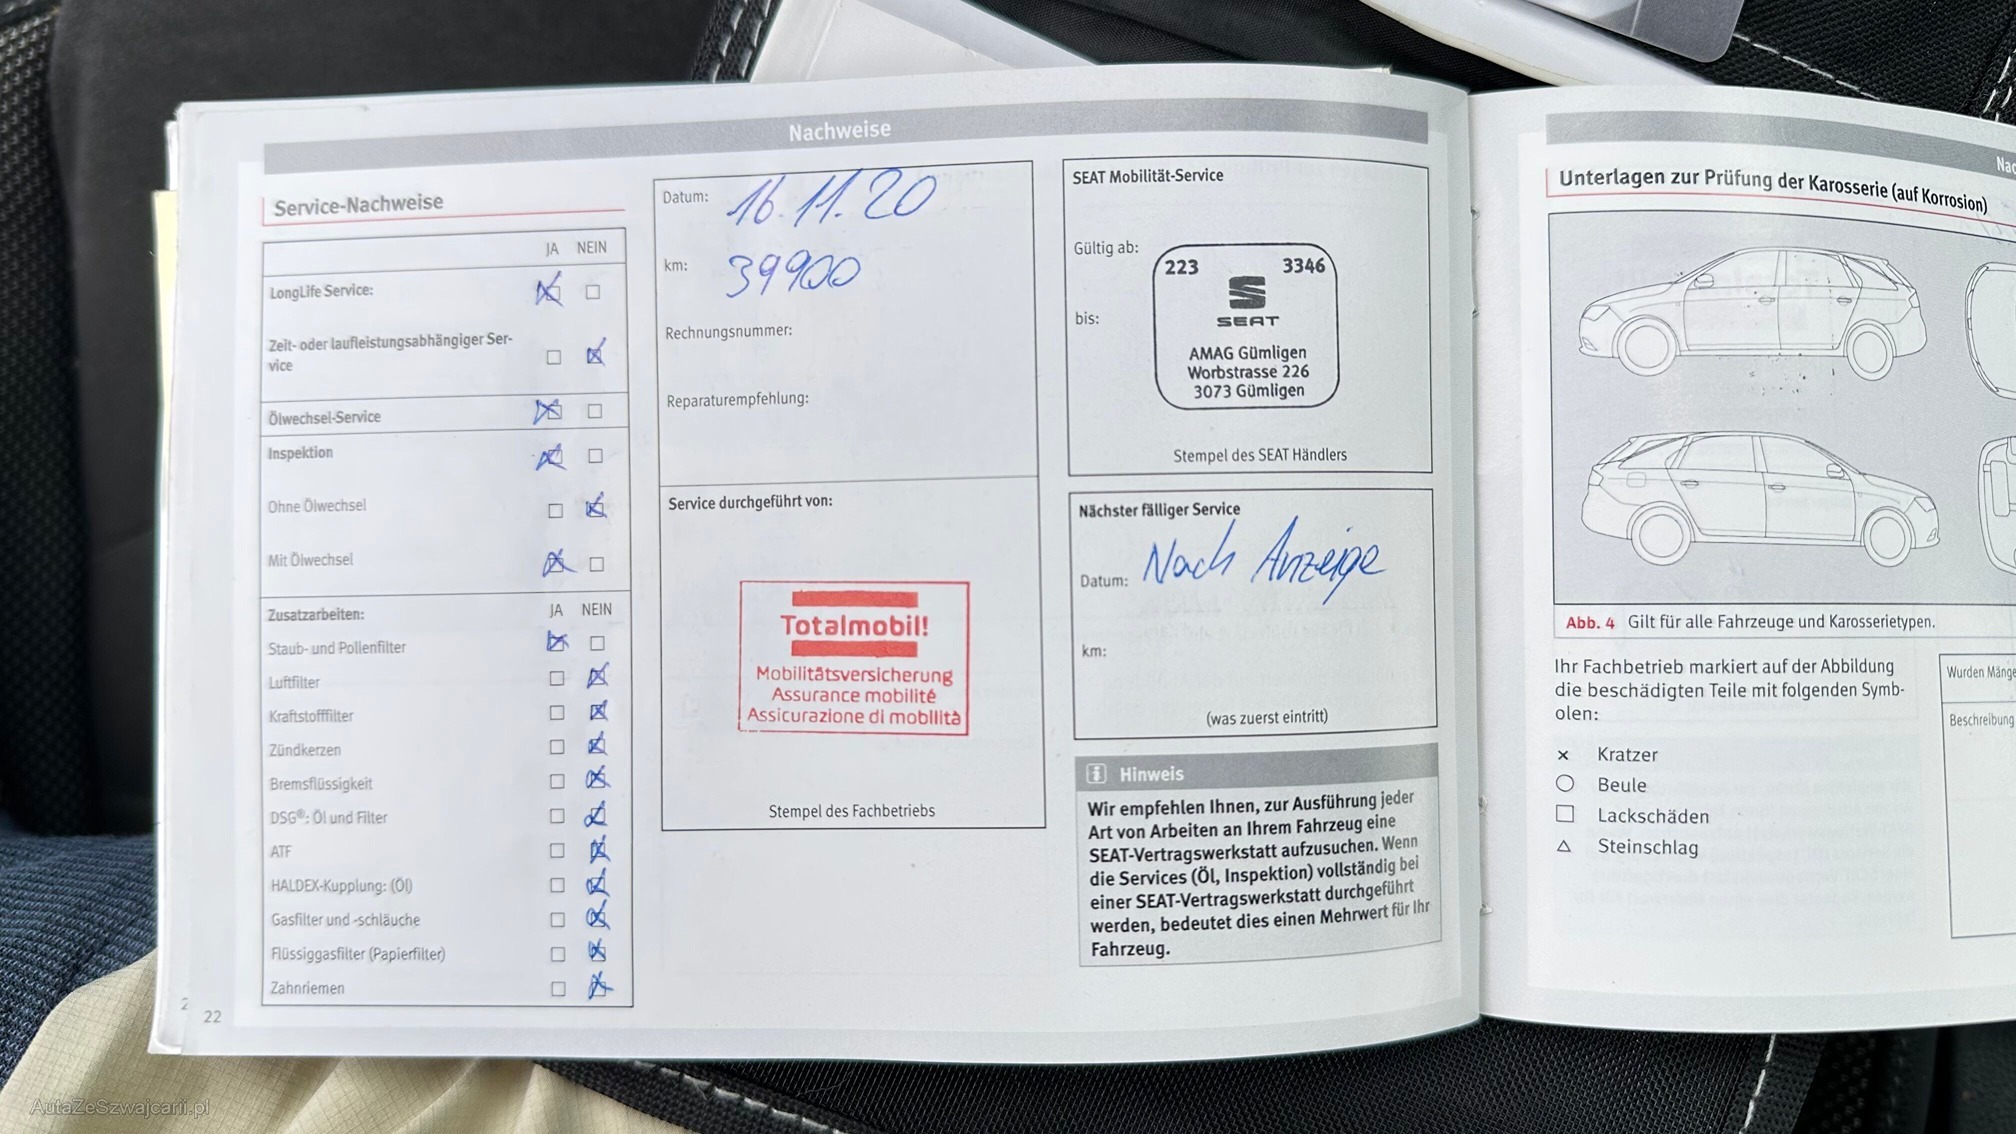 Nachweise
Service-Nachweise
JA NEIN
LongLife Service:
Zeit- oder laufleistungsabhängiger Ser-
vice
Ölwechsel-Service
Inspektion
Ohne Ölwechsel
Mit Ölwechsel
Zusatzarbeiten: JA NEIN
Staub- und Pollenfilter
Luftfilter
Kraftstofffilter
Zündkerzen
Bremsflüssigkeit
DSG®: Öl und Filter
ATF
HALDEX-Kupplung: (Öl)
Gasfilter und -schläuche
Flüssiggasfilter (Papierfilter)
Zahnriemen
22
Datum: 16.11.20
km: 39900
Rechnungsnummer:
Reparaturempfehlung:
Service durchgeführt von:
Totalmobil!
Mobilitätsversicherung
Assurance mobilité
Assicurazione di mobilità
Stempel des Fachbetriebs
SEAT Mobilität-Service
Gültig ab:
bis:
223 3346
SEAT
AMAG Gümligen
Worbstrasse 226
3073 Gümligen
Stempel des SEAT Händlers
Nächster fälliger Service
Datum: Nach Anzeige
km:
(was zuerst eintritt)
Hinweis
Wir empfehlen Ihnen, zur Ausführung jeder
Art von Arbeiten an Ihrem Fahrzeug eine
SEAT-Vertragswerkstatt aufzusuchen. Wenn
die Services (Öl, Inspektion) vollständig bei
einer SEAT-Vertragswerkstatt durchgeführt
werden, bedeutet dies einen Mehrwert für Ihr
Fahrzeug.
Unterlagen zur Prüfung der Karosserie (auf Korrosion)
Abb. 4 Gilt für alle Fahrzeuge und Karosserietypen.
Ihr Fachbetrieb markiert auf der Abbildung
die beschädigten Teile mit folgenden Symb-
olen:
× Kratzer
○ Beule
□ Lackschäden
△ Steinschlag
Wurden Mänge
Beschreibung
AutaZeSzwajcarii.pl